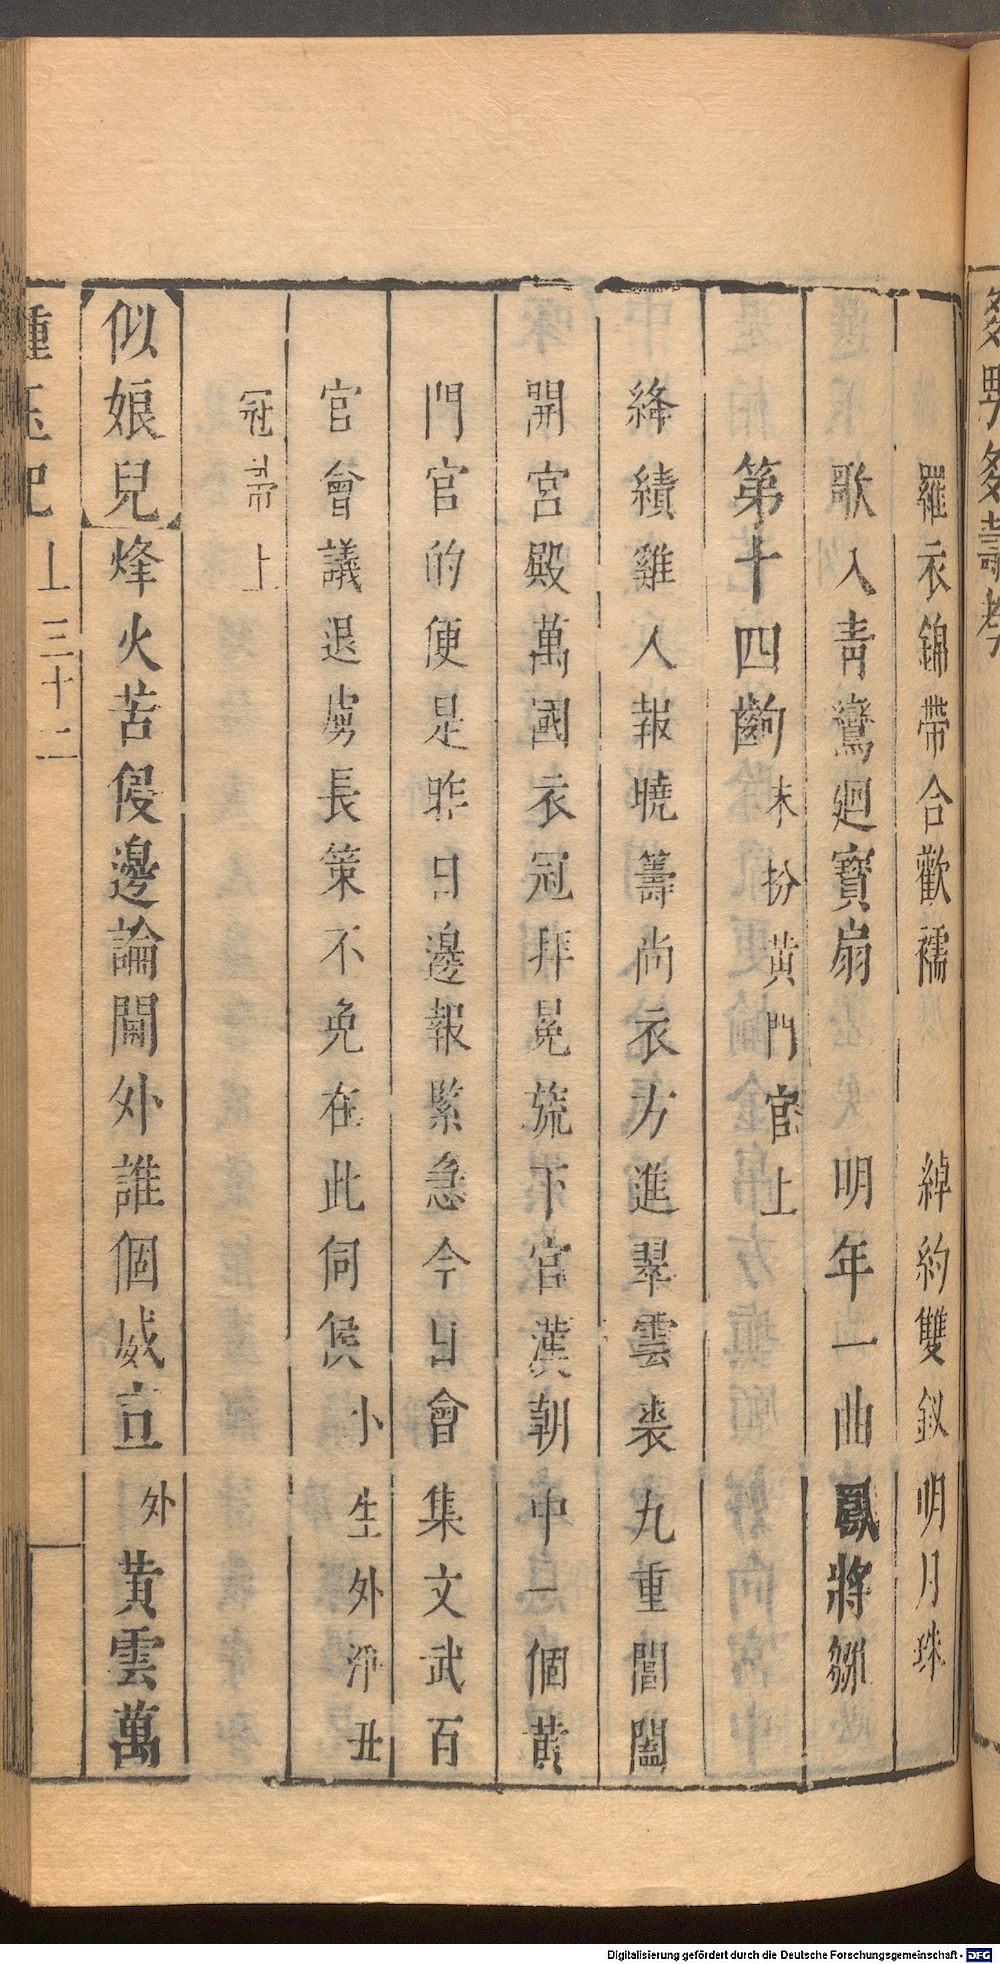 羅衣錦帶合歡襦　綽約雙釵明月珠
歌入青鸞廻寶扇　明年一曲鳳將雛
第十四齣 末扮黃門官上
絳績雞人報曉籌尚衣方進翠雲裘九重閶闔
開宮殿萬國衣冠拜冕旒下官漢朝中一個黃
門官的便是昨日邊報緊急今日會集文武百
官會議退虜長策不免在此伺候 小生外淨丑
冠帶上
似娘兒 烽火苦侵邊論閫外誰個威宣 外 黃雲萬
種玉記
上 三十二
Digitalisierung gefördert durch die Deutsche Forschungsgemeinschaft - DFG